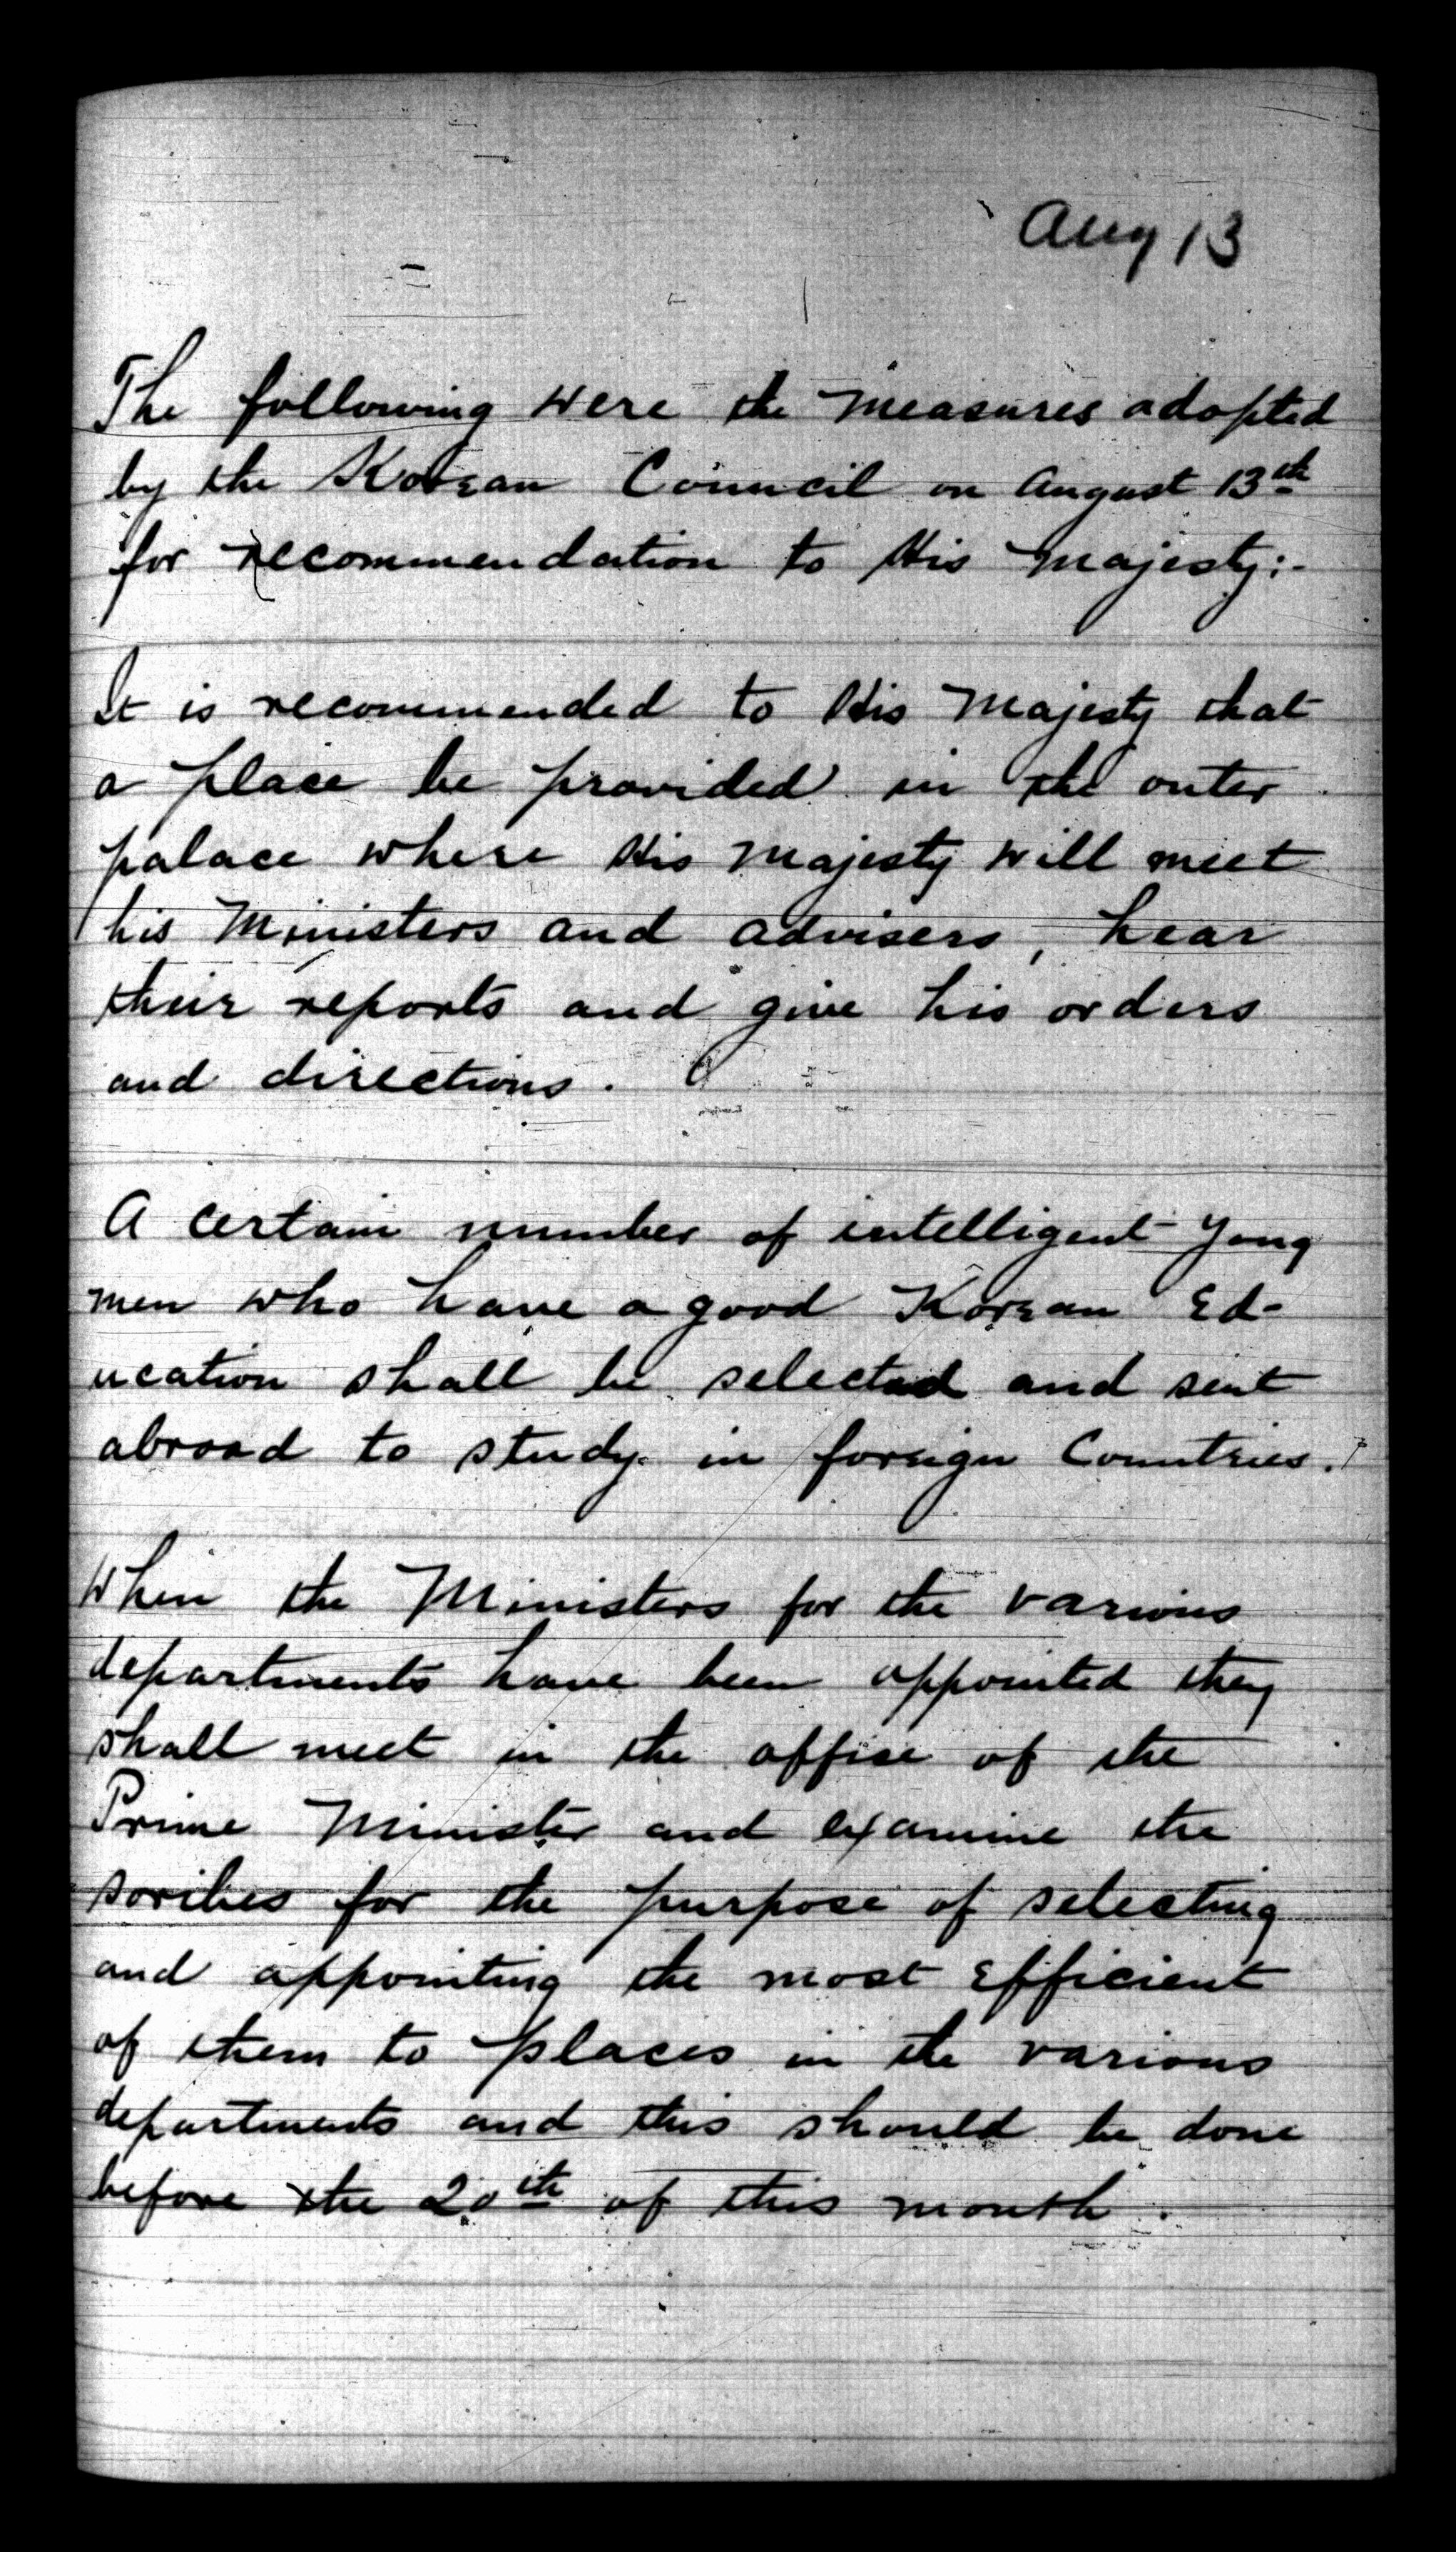 Aug 13
The following were the measures adopted
by the Korean Council on August 13th
for recommendation to His Majesty:-
It is recommended to His Majesty that
a place be provided in the outer
palace where His Majesty will meet
his Ministers and advisers, hear
their reports and give his orders
and directions.
A certain number of intelligent yong
men who have a good Korean Ed-
ucation shall be selected and sent
abroad to study in foreign Countries.
When the Ministers for the various
departments have been appointed they
shall meet in the office of the
Prime Minister and examine the
scribes for the purpose of selecting
and appointing the most efficient
of them to places in the various
departments and this should be done
before the 20th of this month.